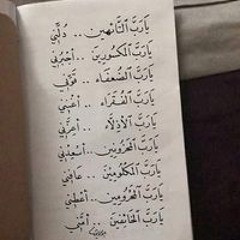 يَارَبَّ التَّائِهِين .. دُلَّنِي
يَارَبَّ المَكسُورِينَ .. أجبُرنِي
يَارَبَّ الضُّعَفَاء .. قَوِّنِي
يَارَبَّ الفُقَرَاء .. أغنِنِي
يَارَبَّ الأذِلَّاء .. أعِزَّنِي
يَارَبَّ المَحزُونِين .. أسعِدنِي
يَارَبَّ المَكلُومِينَ .. عَافِنِي
يَارَبَّ المَحرُومِين .. أعطِنِي
يَارَبَّ الخَائِفِينَ .. أمِّنِّي